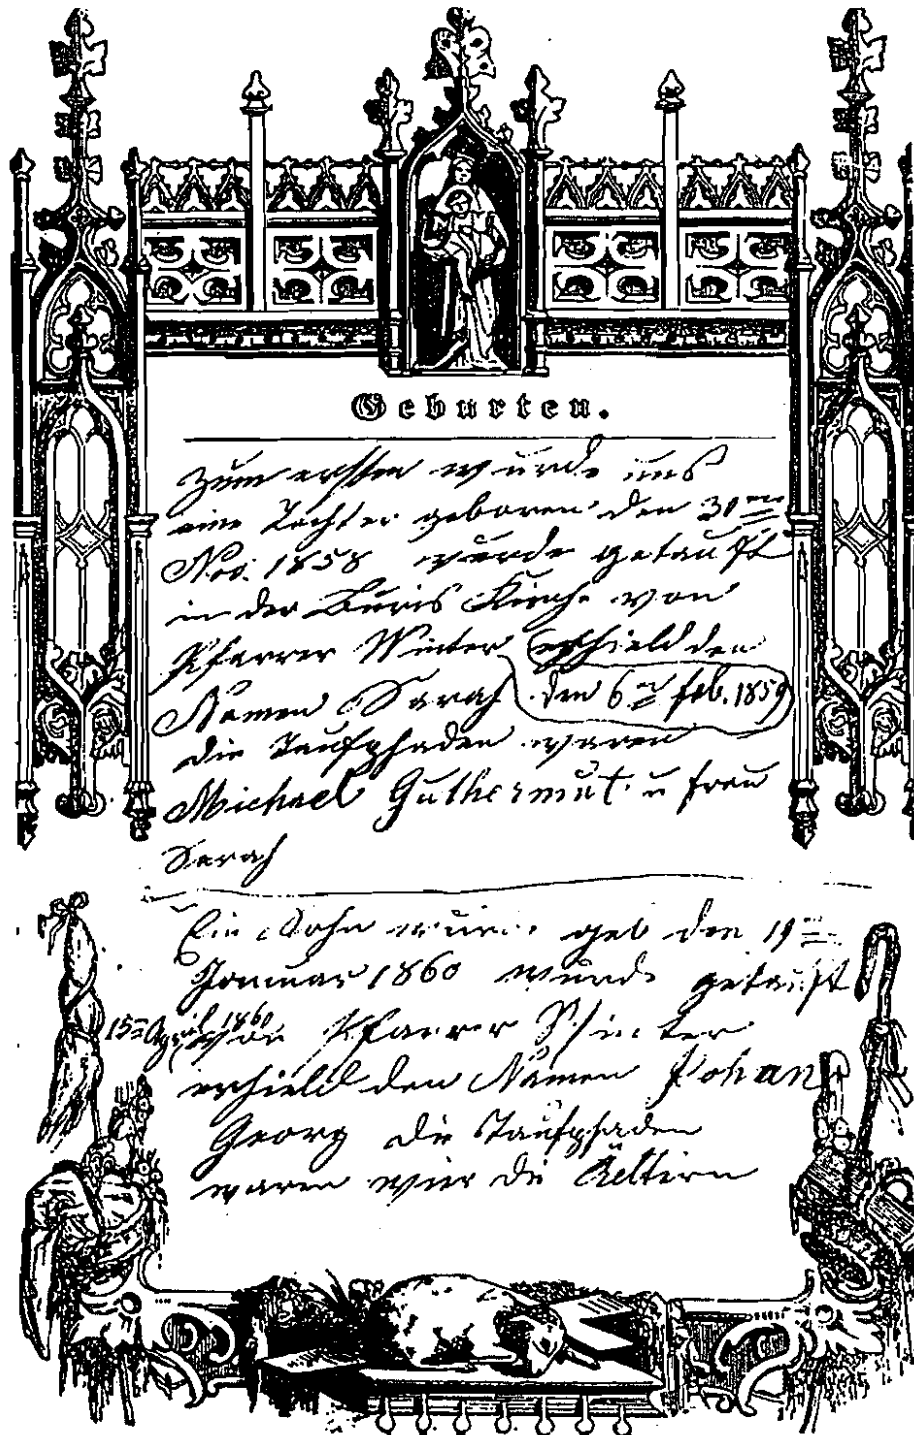 Geburten.
Zum ersten wurde uns
eine Tochter geboren den 30ten
Nov. 1858 wurde getauft
in der Kirche von
Pfarrer Winter erhield den
Namen Sarah den 6ten feb. 1859
die Taufphaden waren
Michael Guthermut u frau
Sarah
Ein Sohn wurde geb den 19ten
Januar 1860 wurde getauft
15ten April 1860 von Pfarrer Winter
erhield den Namen Johann
Georg die Taufphaden
waren wier die Aeltirn